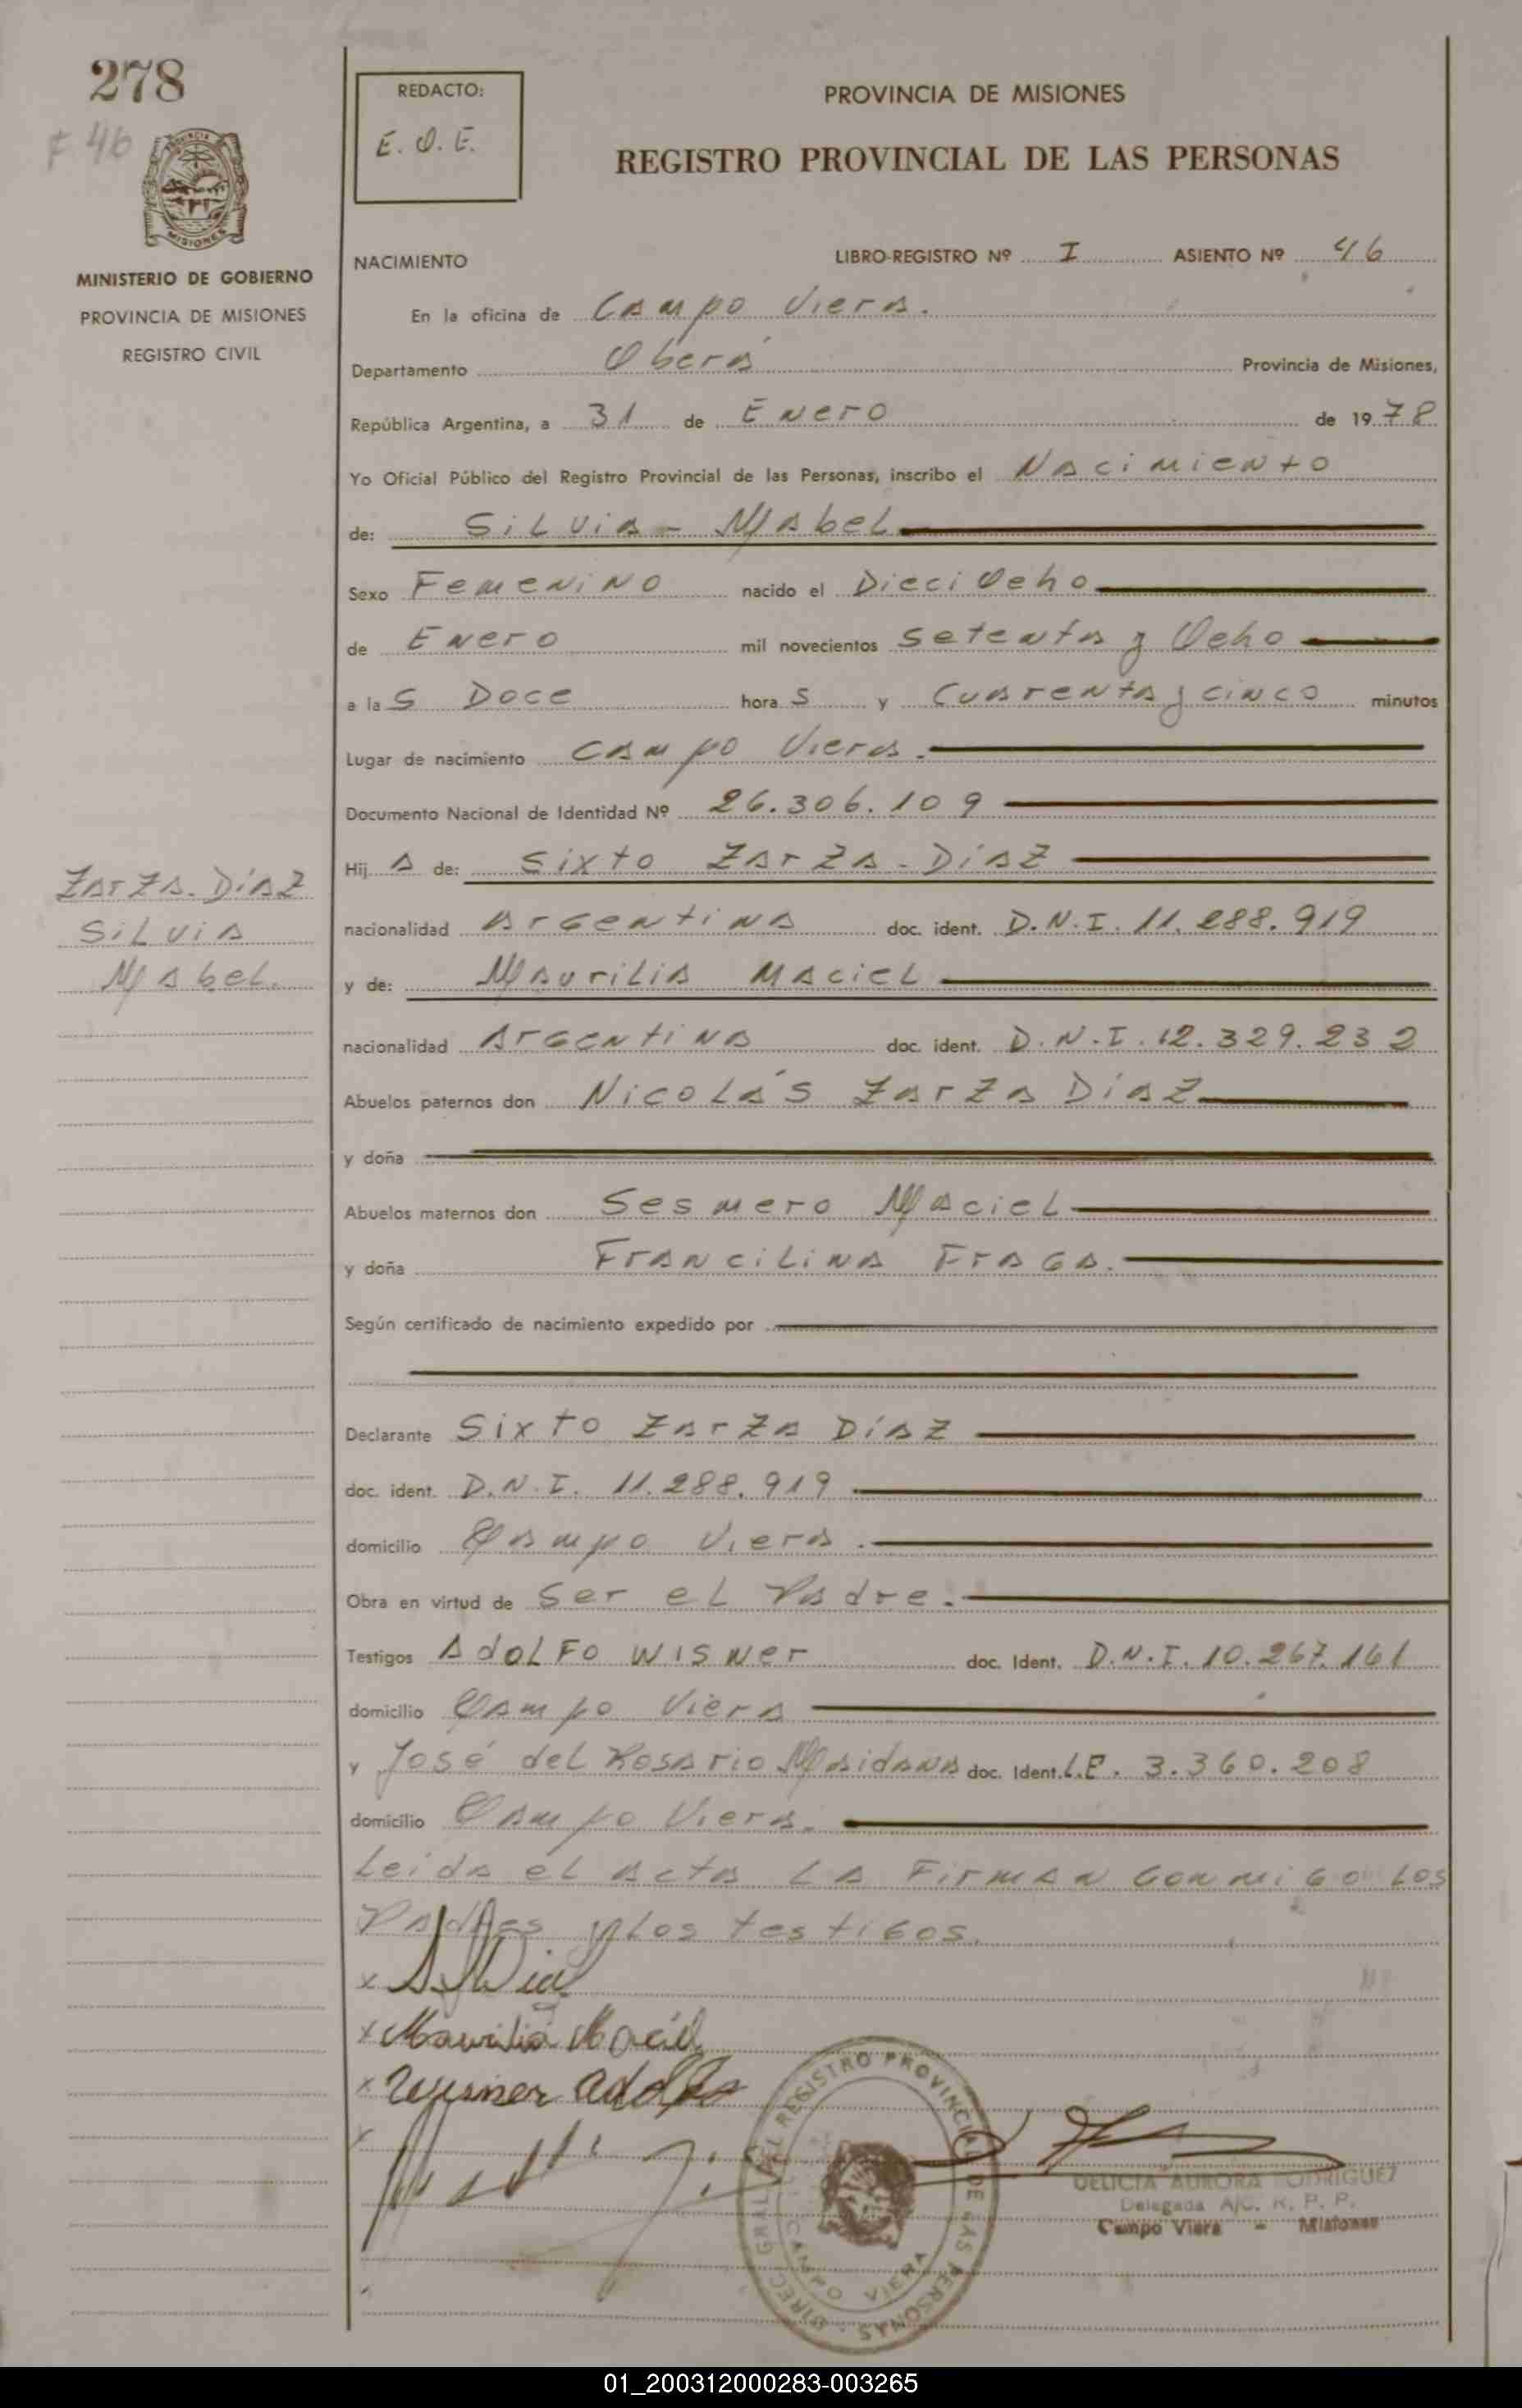 278
F 46
PROVINCIA
MISIONES
MINISTERIO DE GOBIERNO
PROVINCIA DE MISIONES
REGISTRO CIVIL
REDACTO:
E. O. E.
PROVINCIA DE MISIONES
REGISTRO PROVINCIAL DE LAS PERSONAS
NACIMIENTO LIBRO-REGISTRO Nº I ASIENTO Nº 46
En la oficina de Campo Viera.
Departamento Oberá Provincia de Misiones,
República Argentina, a 31 de Enero de 1978
Yo Oficial Público del Registro Provincial de las Personas, inscribo el Nacimiento
de: Silvia - Mabel
Sexo Femenino nacido el Dieciocho
de Enero mil novecientos Setenta y Ocho
a las Doce horas y Cuarenta y cinco minutos
Lugar de nacimiento Campo Viera.
Documento Nacional de Identidad Nº 26.306.109
Hija de: Sixto Zarza - Díaz
Zarza - Díaz
Silvia
Mabel.
nacionalidad Argentina doc. ident. D.N.I. 11.288.919
y de: Maurilia Maciel
nacionalidad Argentina doc. ident. D.N.I. 12.329.232
Abuelos paternos don Nicolás Zarza Díaz
y doña
Abuelos maternos don Sesmero Maciel
y doña Francilina Fraga.
Según certificado de nacimiento expedido por
Declarante Sixto Zarza Díaz
doc. ident. D.N.I. 11.288.919
domicilio Campo Viera.
Obra en virtud de Ser el Padre.
Testigos Adolfo Wisner doc. Ident. D.N.I. 10.267.161
domicilio Campo Viera
y José del Rosario Maidana doc. Ident. L.E. 3.360.208
domicilio Campo Viera.
Leida el acta la Firman conmigo los
Padres y los testigos.
x
x Maurilia Maciel
x Wisner Adolfo
x
DIREC. GRAL. DEL REGISTRO PROVINCIAL DE LAS PERSONAS
CAMPO VIERA
DELICIA AURORA RODRIGUEZ
Delegada A/C. R. P. P.
Campo Viera - Misiones
01_200312000283-003265